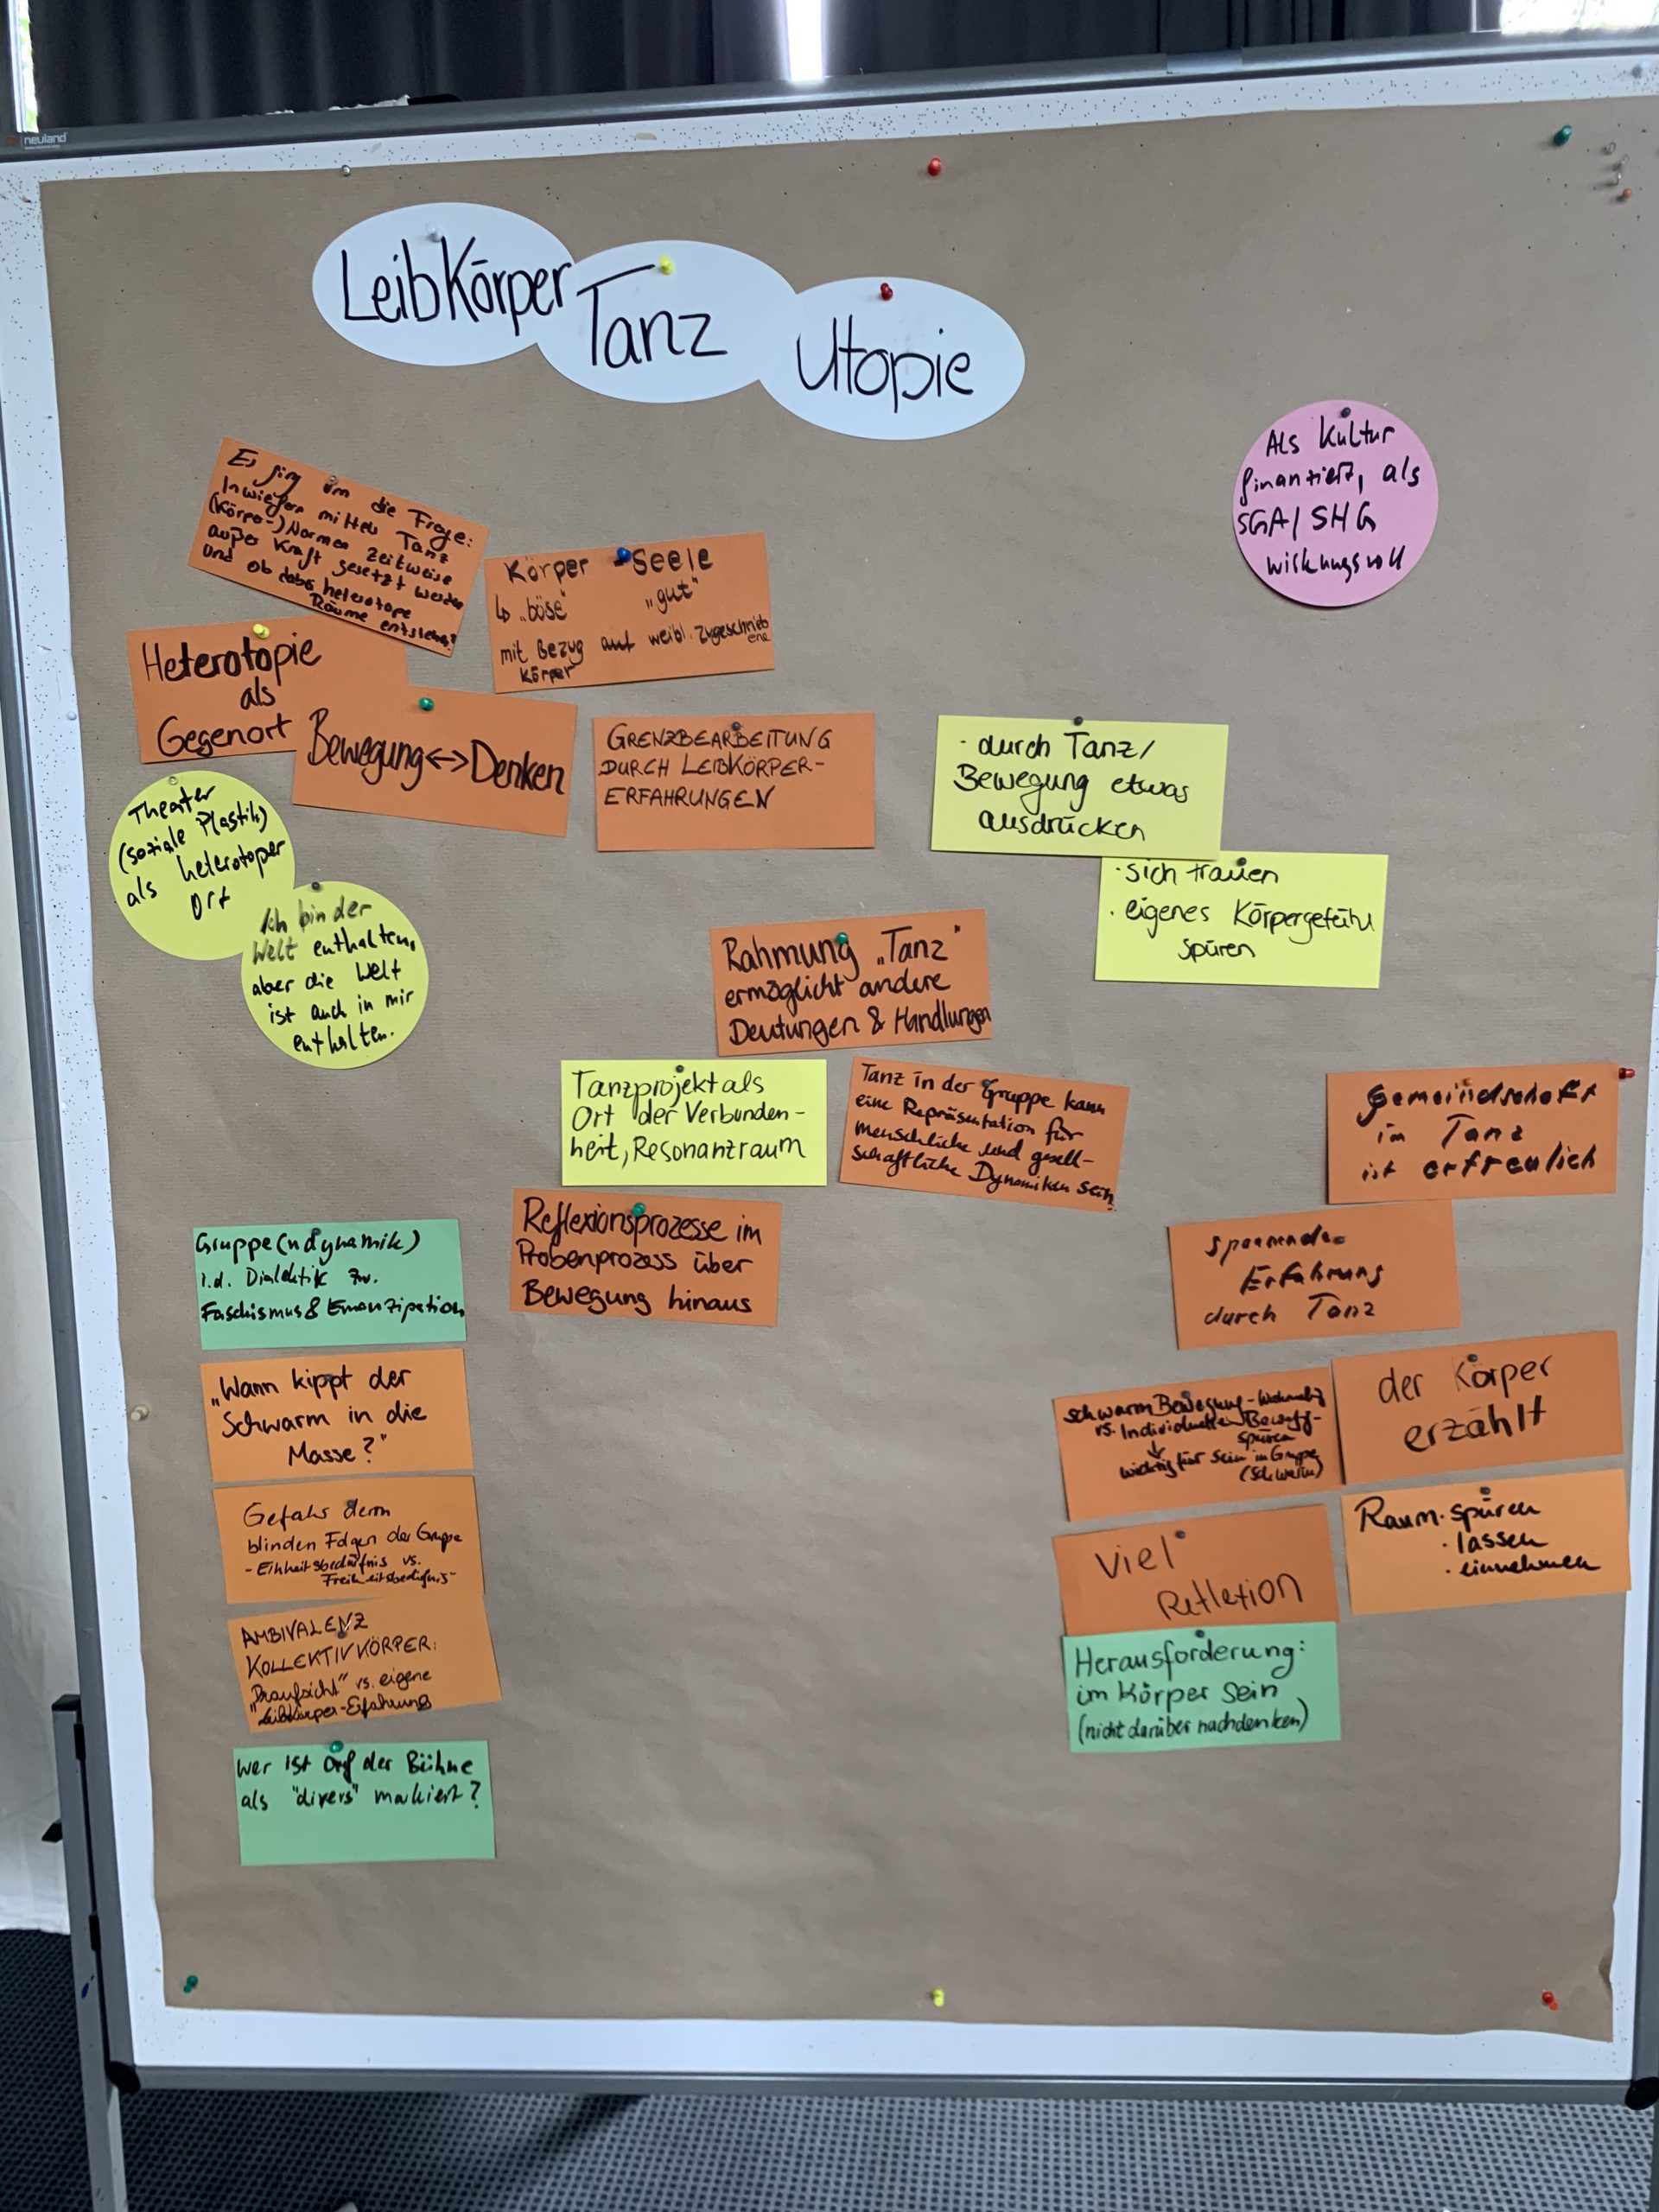 neuland
LeibKörper
Tanz
Utopie
Als Kultur
finanziert, als
SGA/SHG
wirkungsvoll
Es ging um die Frage:
Inwiefern mittels Tanz
(Körper-)Normen zeitweise
außer Kraft gesetzt werden
und ob dabei heterotope
Räume entstehen?
Körper Seele
↳ „böse" „gut"
mit Bezug auf weibl. zugeschriebene
Körper
Heterotopie
als
Gegenort
Bewegung <-> Denken
GRENZBEARBEITUNG
DURCH LEIBKÖRPER-
ERFAHRUNGEN
· durch Tanz/
Bewegung etwas
ausdrücken
· sich trauen
· eigenes Körpergefühl
spüren
Theater
(soziale Plastik)
als heterotoper
Ort
Ich bin der
Welt enthalten,
aber die Welt
ist auch in mir
enthalten.
Rahmung „Tanz"
ermöglicht andere
Deutungen & Handlungen
Tanzprojekt als
Ort der Verbunden-
heit, Resonanzraum
Tanz in der Gruppe kann
eine Repräsentation für
menschliche und gesell-
schaftliche Dynamiken sein
Reflexionsprozesse im
Probenprozess über
Bewegung hinaus
Gemeindschaft
im Tanz
ist erfreulich
spannende
Erfahrung
durch Tanz
Gruppe(ndynamik)
i.d. Dialektik zw.
Faschismus & Emanzipation
„Wann kippt der
Schwarm in die
Masse?"
Gefahr dem
blinden Folgen der Gruppe
- Einheitsbedürfnis vs.
Freiheitsbedürfnis-
AMBIVALENZ
KOLLEKTIVKÖRPER:
„Draufsicht" vs. eigene
Leibkörper-Erfahrung
Wer ist auf der Bühne
als "divers" markiert?
Schwarm Bewegung-
vs. Individuellen
spüren
↓
wichtig für Sein in Gruppe
(Schwarm)
der Körper
erzählt
Raum · spüren
· lassen
· einnehmen
Viel
Refletion
Herausforderung:
im Körper sein
(nicht darüber nachdenken)